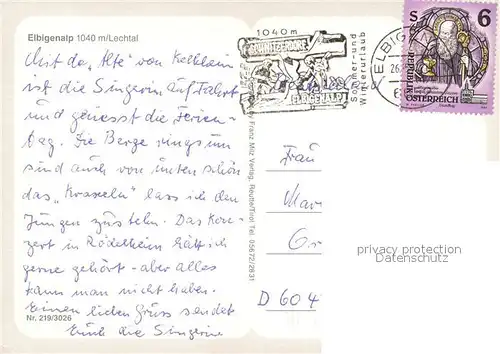 Elbigenalp 1040 m/Lechtal
Mit da "Alte" von Kelkheim
ist die Singerin auf Fahrt
und geniesst die Ferien-
tag. Die Berge rings um
sind auch von unten schön
das "Kraxeln" lass ich den
Jungen zusteh'n. Das Kon-
zert in Rödelheim hätt ich
gerne gehört - aber alles
kann man nicht haben.
Einen lieben Gruss sendet
Euch die Singerin
Nr. 219/3026
Franz Milz Verlag, Reutte/Tirol Tel. 05672/2831
1040 m
SCHNITZERDORF
ELBIGENALP
Sommer- und
Winterurlaub
ELBIGENA
S 6
REPUBLIK
ÖSTERREICH
Frau
D 604
privacy protection
Datenschutz